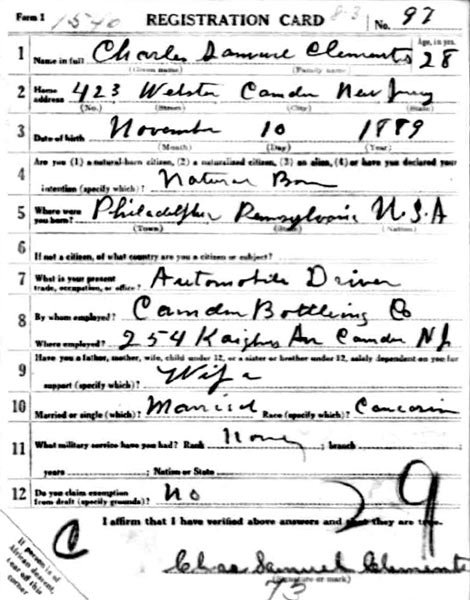 Form 1 1540 REGISTRATION CARD 8-3 No. 97
1 Name in full Charles Samuel Clements Age, in yrs. 28
(Given name) (Family name)
2 Home address 423 Webster Camden New Jersey
(No.) (Street) (City) (State)
3 Date of birth November 10 1889
(Month) (Day) (Year)
4 Are you (1) a natural-born citizen, (2) a naturalized citizen, (3) an alien, (4) or have you declared your
intention (specify which)? Natural Born
5 Where were you born? Philadelphia Pennsylvania U.S.A
(Town) (State) (Nation)
6 If not a citizen, of what country are you a citizen or subject?
7 What is your present trade, occupation, or office? Automobile Driver
8 By whom employed? Camden Bottling Co
Where employed? 254 Kaighns Av Camden N.J.
9 Have you a father, mother, wife, child under 12, or a sister or brother under 12, solely dependent on you for
support (specify which)? Wife
10 Married or single (which)? Married Race (specify which)? Caucasian
11 What military service have you had? Rank None ; branch
years ; Nation or State
12 Do you claim exemption from draft (specify grounds)? No
29
I affirm that I have verified above answers and that they are true.
C
Chas Samuel Clements
(Signature or mark)
73
If person is of
African descent,
tear off this
corner